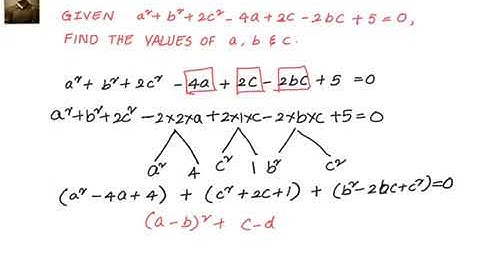 GIVEN a² + b² + 2c² - 4a + 2c - 2bc + 5 = 0,
FIND THE VALUES OF a, b & c.
a² + b² + 2c² - 4a + 2c - 2bc + 5 = 0
a² + b² + 2c² - 2×2×a + 2×1×c - 2×b×c + 5 = 0
a² 4 c² 1 b² c²
(a² - 4a + 4) + (c² + 2c + 1) + (b² - 2bc + c²) = 0
(a - b)² + c - d